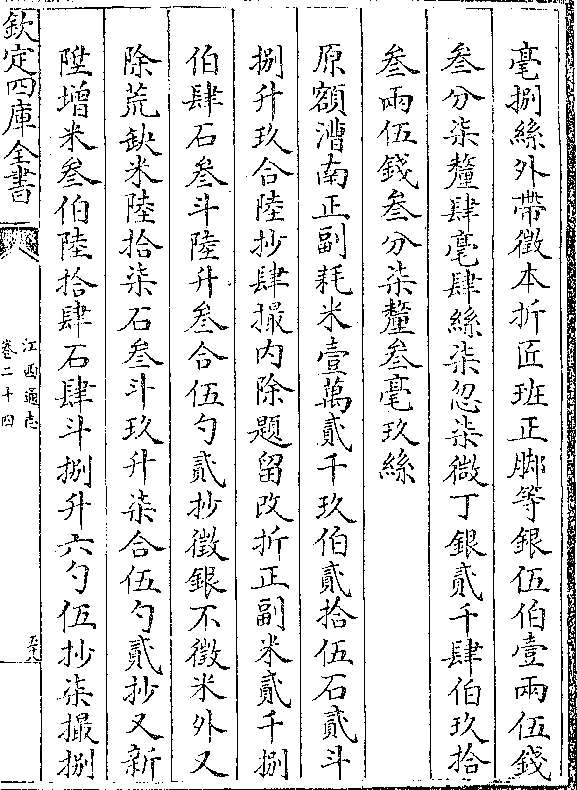 毫捌絲外帶徵本折匠班正脚等銀伍伯壹兩伍錢
叁分柒釐肆毫肆絲柒忽柒微丁銀貳千肆伯玖拾
叁兩伍錢叁分柒釐叁毫玖絲
原額漕南正副耗米壹萬貳千玖伯貳拾伍石貳斗
捌升玖合陸抄肆撮内除題留改折正副米貳千捌
伯肆石叁斗陸升叁合伍勺貳抄徵銀不徵米外又
除荒缺米陸拾柒石叁斗玖升柒合伍勺貳抄又新
陞增米叁伯陸拾肆石肆斗捌升六勺伍抄柒撮捌
欽定四庫全書
江西通志
卷二十四